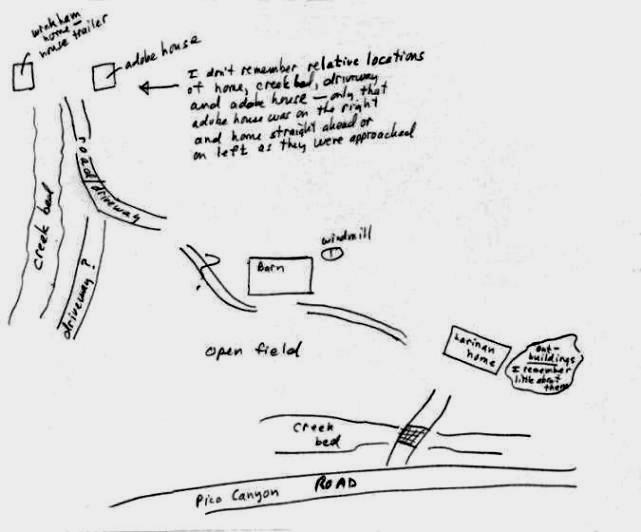 winkham
home —
house trailer
adobe house
I don't remember relative locations
of home, creek bed, driveway
and adobe house — only that
adobe house was on the right
and home straight ahead or
on left as they were approached
road/driveway
creek bed
driveway?
?
windmill
Barn
open field
Larinan
home
out-
buildings
I remember
little about
them
creek
bed
Pico Canyon ROAD